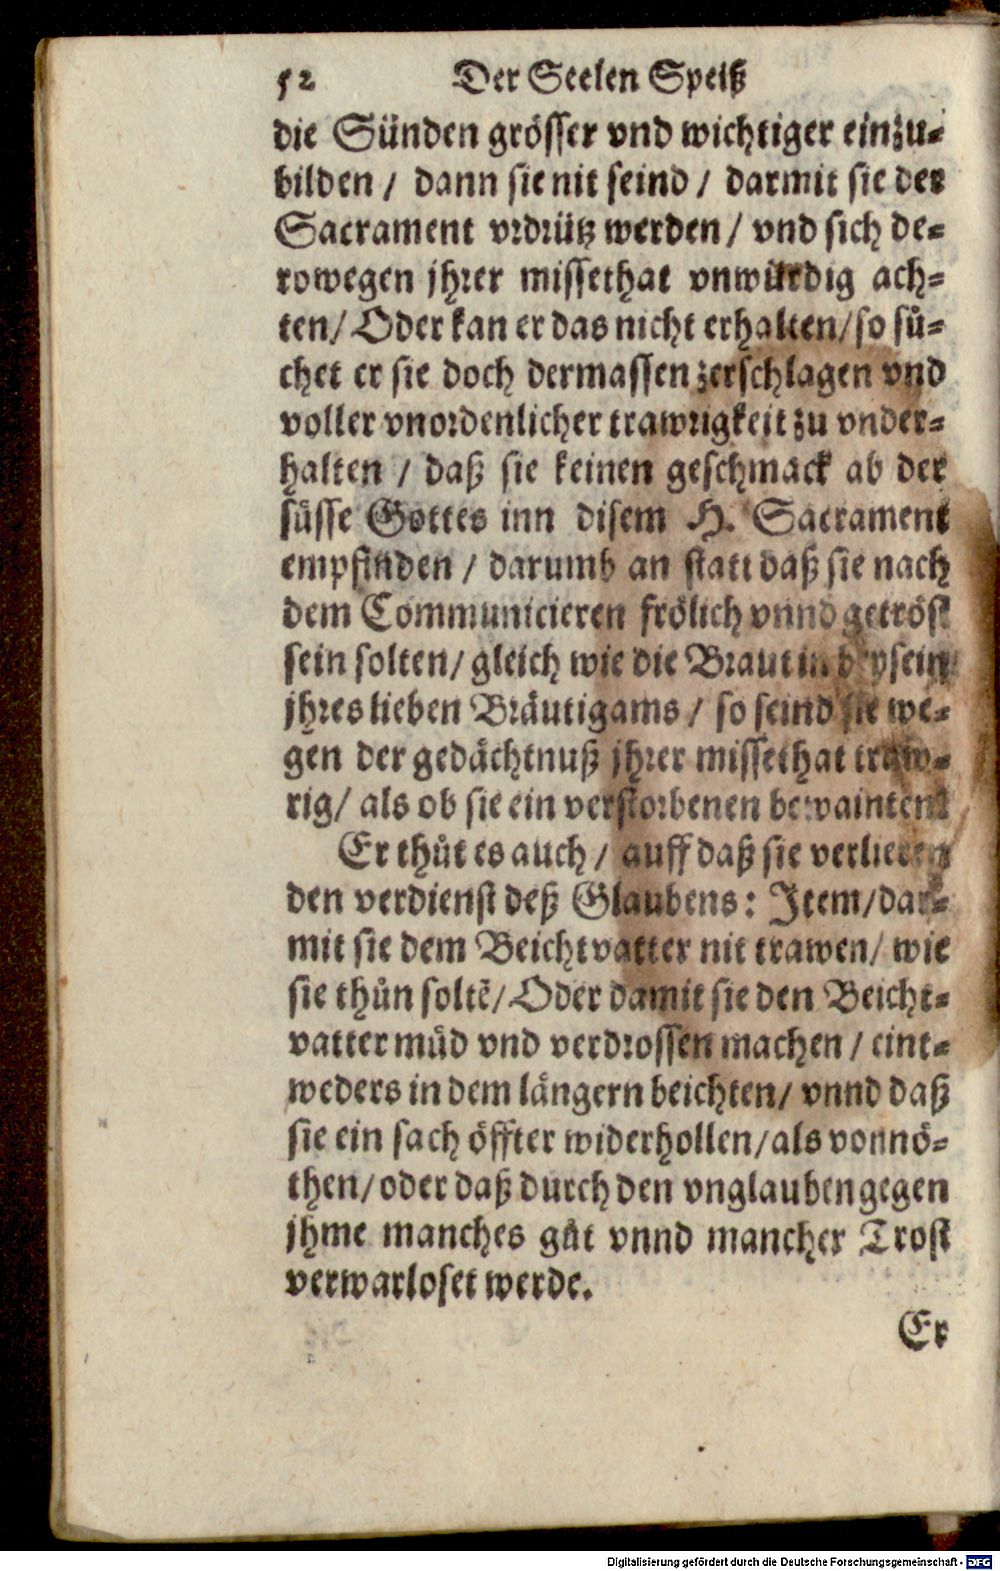 52 Der Seelen Speiß
die Sünden grösser vnd wichtiger einzu-
bilden / dann sie nit seind / darmit sie des
Sacrament vrdrütz werden / vnd sich de-
rowegen jhrer missethat vnwürdig ach-
ten / Oder kan er das nicht erhalten / so sů-
chet er sie doch dermassen zerschlagen vnd
voller vnordenlicher trawrigkeit zu vnder-
halten / daß sie keinen geschmack ab der
süsse Gottes inn disem H. Sacrament
empfinden / darumb an statt daß sie nach
dem Communicieren frölich vnnd getröst
sein solten / gleich wie die Braut in beysein
jhres lieben Bräutigams / so seind sie we-
gen der gedächtnuß jhrer missethat traw-
rig / als ob sie ein verstorbenen bewainten.
Er thůt es auch / auff daß sie verlieren
den verdienst deß Glaubens: Item / dar-
mit sie dem Beichtvatter nit trawen / wie
sie thůn soltē / Oder damit sie den Beicht-
vatter müd vnd verdrossen machen / eint-
weders in dem längern beichten / vnnd daß
sie ein sach öffter widerhollen / als vonnö-
then / oder daß durch den vnglauben gegen
jhme manches gůt vnnd mancher Trost
verwarloset werde.
Er
Digitalisierung gefördert durch die Deutsche Forschungsgemeinschaft - DFG